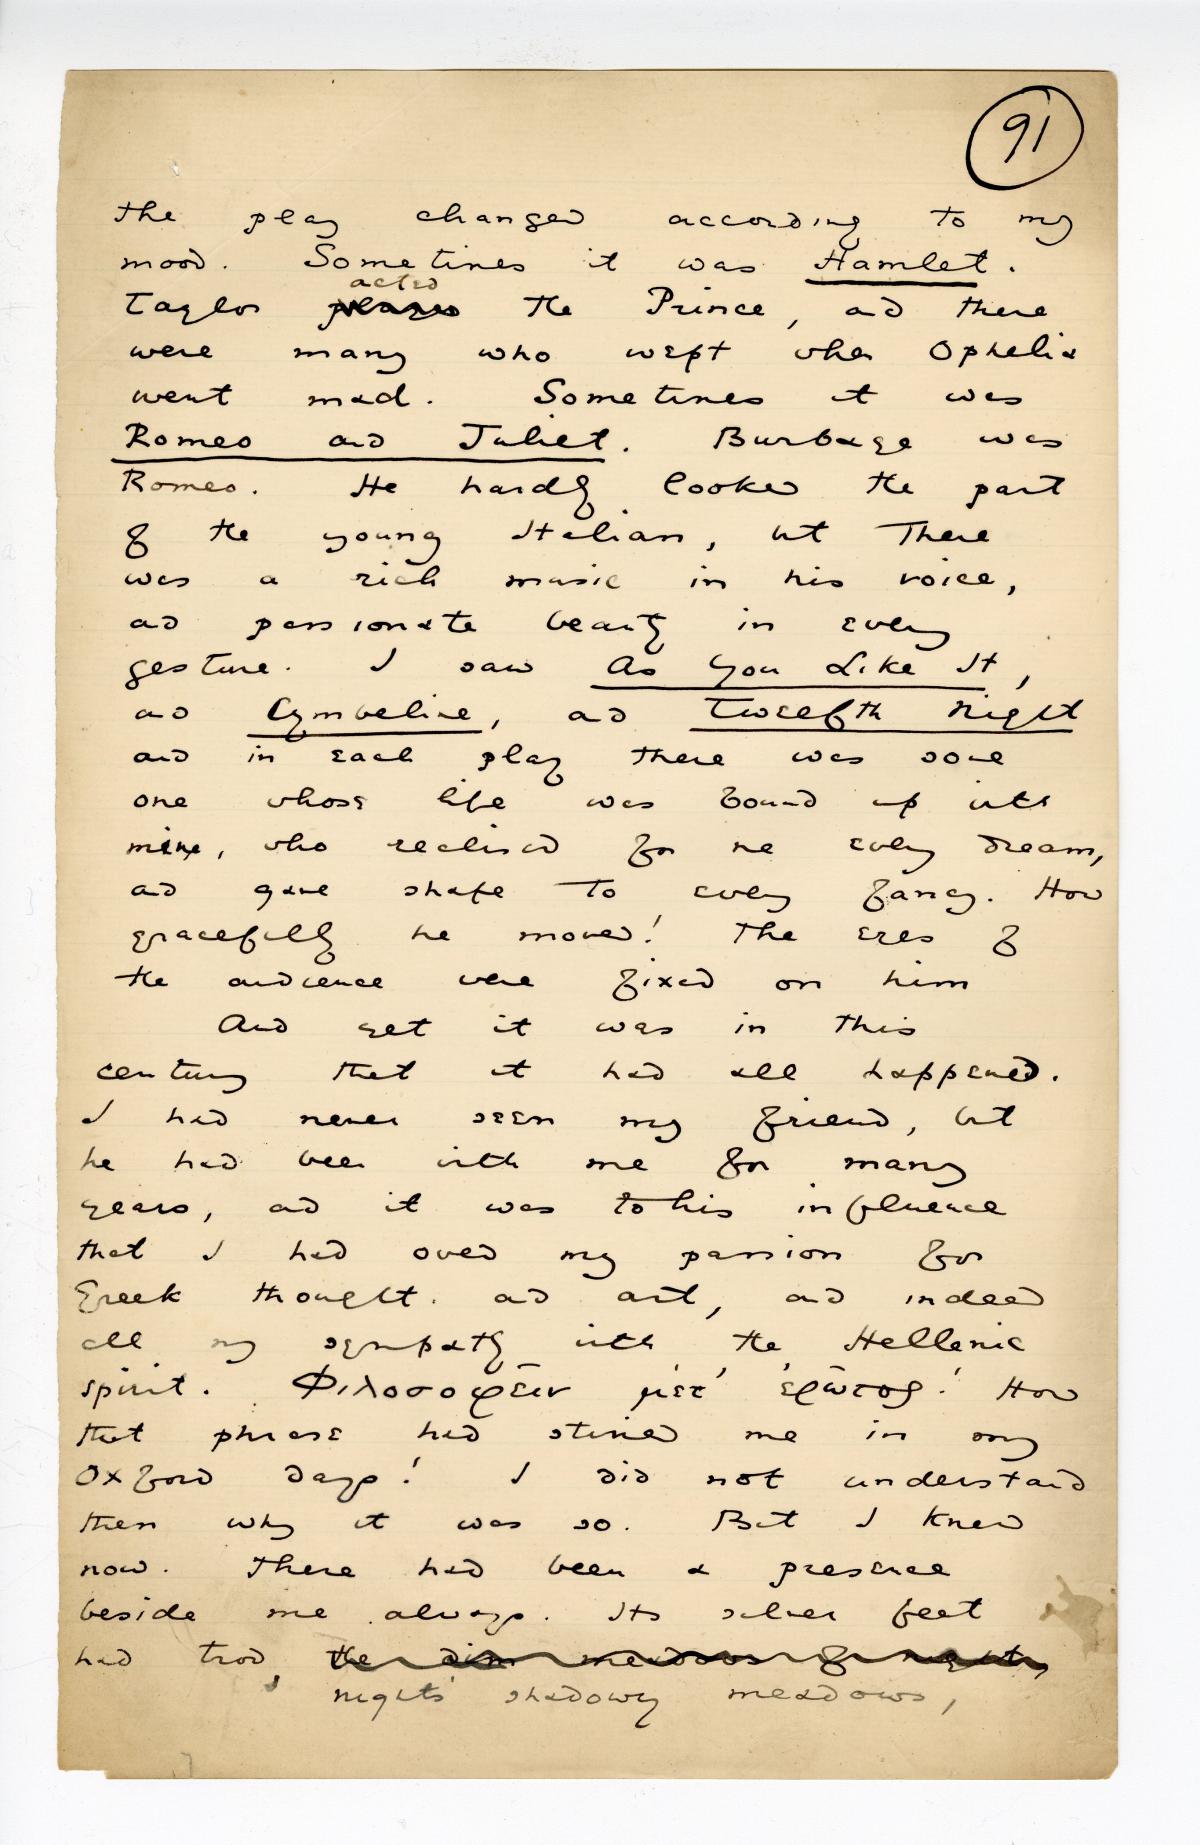 91
the play changed according to my
mood. Sometimes it was Hamlet.
acted
Taylor played the Prince, and there
were many who wept when Ophelia
went mad. Sometimes it was
Romeo and Juliet. Burbage was
Romeo. He hardly looked the part
of the young Italian, but there
was a rich music in his voice,
and passionate beauty in every
gesture. I saw As You Like It,
and Cymbeline, and Twelfth Night
and in each play there was some
one whose life was bound up with
mine, who realised for me every dream,
and gave shape to every fancy. How
gracefully he moved! The eyes of
the audience were fixed on him
And yet it was in this
century that it had all happened.
I had never seen my friend, but
he had been with me for many
years, and it was to his influence
that I had owed my passion for
Greek thought. and art, and indeed
all my sympathy with the Hellenic
spirit. Φιλοσοφεῖν μετ' ἔρωτος! How
that phrase had stirred me in my
Oxford days! I did not understand
then why it was so. But I knew
now. There had been a presence
beside me always. Its silver feet
had trod the dim meadows of night,
night's shadowy meadows,